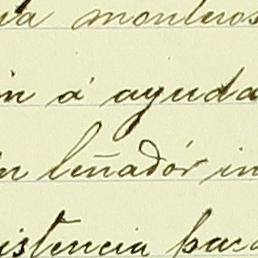 va monteros
in á ayuda
n leñadór in
istencia pac